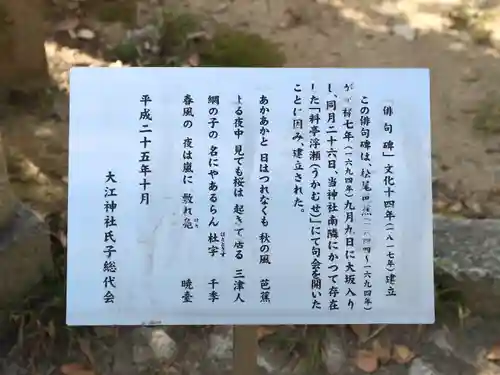 「俳句碑」文化十四年(一八一七年)建立
この俳句碑は、松尾芭蕉(一六四四~一六九四年)
が元禄七年(一六九四年)九月九日に大坂入り
し、同月二十六日、当神社南隣にかつて存在
した「料亭浮瀬(うかむせ)」にて句会を開いた
ことに因み、建立された。
あかあかと 日はつれなくも 秋の風 芭蕉
よる夜中 見ても桜は 起きて居る 三津人
綱の子の 名にやあるらん 杜宇 千季
ほととぎす
春風の 夜は嵐に 敷れ鳧 暁臺
けり
平成二十五年十月
大江神社氏子総代会